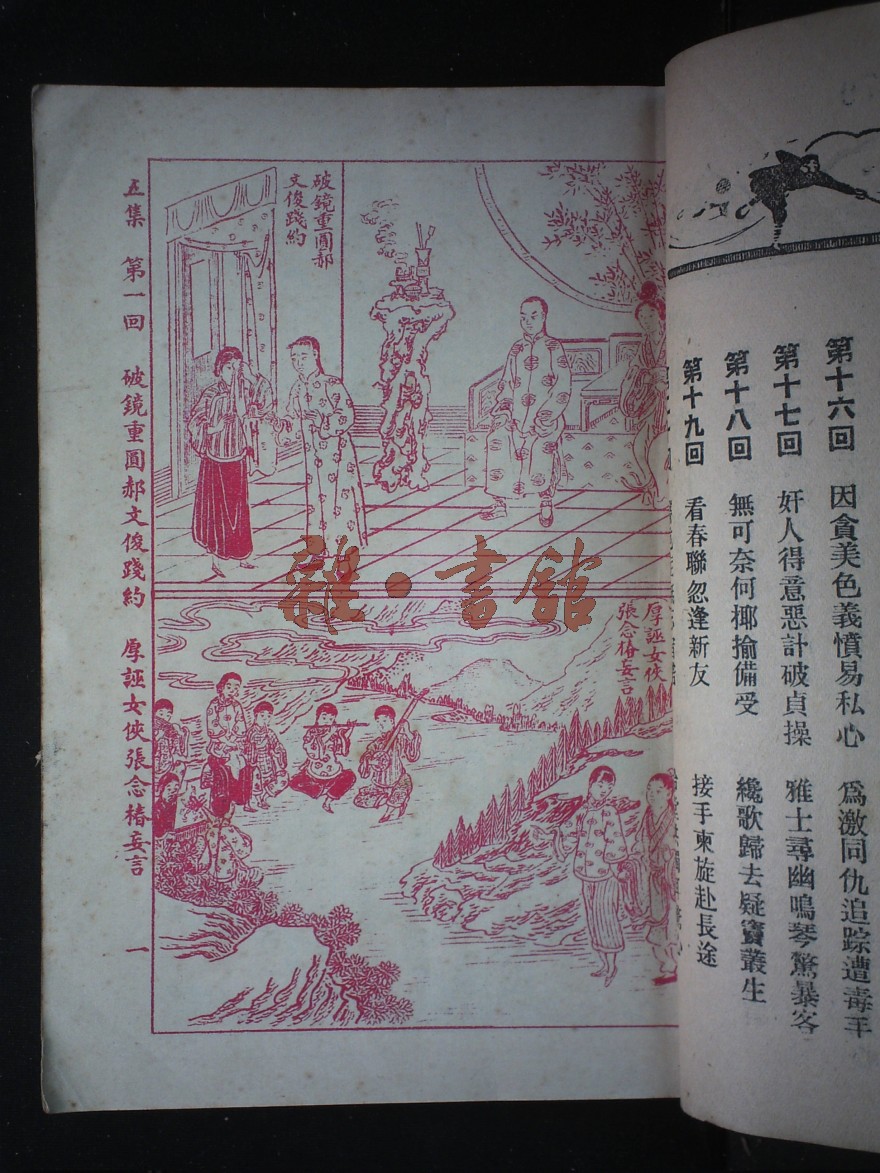 第十六回　因貪美色義憤易私心　爲激同仇追踪遭毒手
第十七回　奸人得意惡計破貞操　雅士尋幽鳴琴驚暴客
第十八回　無可奈何揶揄備受　纔歌歸去疑竇叢生
第十九回　看春聯忽逢新友　接手柬旋赴長途
破鏡重圓郝
文俊踐約
厚誣女俠
張念椿妄言
五集　第一回　破鏡重圓郝文俊踐約　厚誣女俠張念椿妄言　一
雜·書館